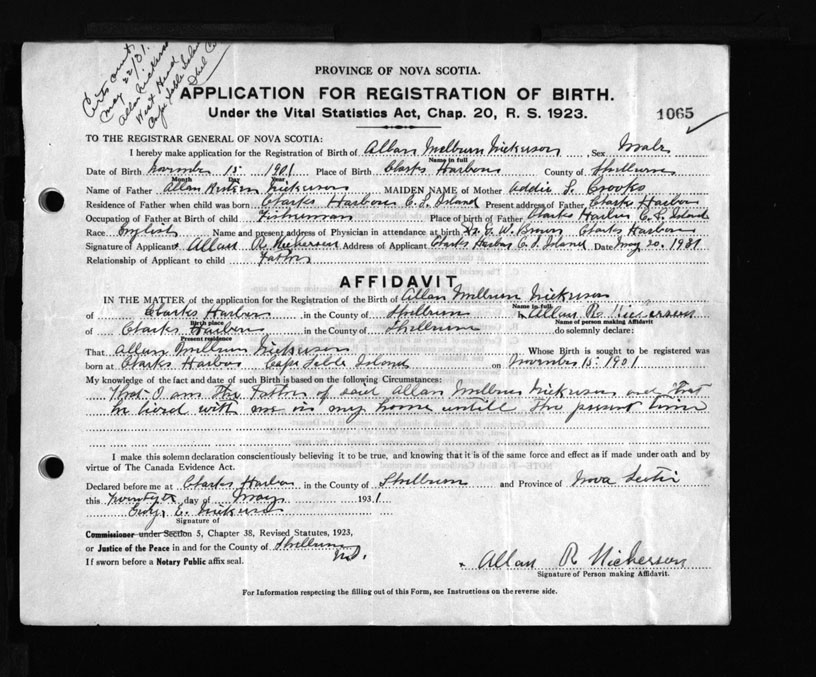 May 22/31.
PROVINCE OF NOVA SCOTIA.
APPLICATION FOR REGISTRATION OF BIRTH.
Under the Vital Statistics Act, Chap. 20, R. S. 1923.
1065
TO THE REGISTRAR GENERAL OF NOVA SCOTIA:
I hereby make application for the Registration of Birth of Allan Melburn Nickerson Sex Male
Name in full
Date of Birth November 15 1901 Place of Birth Clarks Harbour County of Shelburne
Month Day Year
Name of Father Allan Nickerson MAIDEN NAME of Mother Addie L. Crooks
Residence of Father when child was born Clarks Harbour C. S. Island Present address of Father Clarks Harbor
Occupation of Father at Birth of child Fisherman Place of birth of Father Clarks Harbor C. S. Island
Race English Name and present address of Physician in attendance at birth Dr. C. W. Brown Clarks Harbour
Signature of Applicant Allan R. Nickerson Address of Applicant Clarks Harbor C. S. Island Date May 20. 1931
Relationship of Applicant to child Father
AFFIDAVIT
IN THE MATTER of the application for the Registration of the Birth of Allan Melburn Nickerson
Name in full
of Clarks Harbor in the County of Shelburne I, Allan R. Nickerson
Birth place Name of person making Affidavit
of Clarks Harbor in the County of Shelburne do solemnly declare:
Present residence
That Allan Melburn Nickerson Whose Birth is sought to be registered was
born at Clarks Harbor Cape Sable Island on November 15. 1901
My knowledge of the fact and date of such Birth is based on the following Circumstances:
That I am the Father of said Allan Melburn Nickerson and that
he lived with me in my home untill the present time
I make this solemn declaration conscientiously believing it to be true, and knowing that it is of the same force and effect as if made under oath and by
virtue of The Canada Evidence Act.
Declared before me at Clarks Harbor in the County of Shelburne and Province of Nova Scotia
this twentyth day of May 1931
E. Nickerson
Signature of
Commissioner under Section 5, Chapter 38, Revised Statutes, 1923,
or Justice of the Peace in and for the County of Shelburne
If sworn before a Notary Public affix seal.
Allan R Nickerson
Signature of Person making Affidavit.
For Information respecting the filling out of this Form, see Instructions on the reverse side.